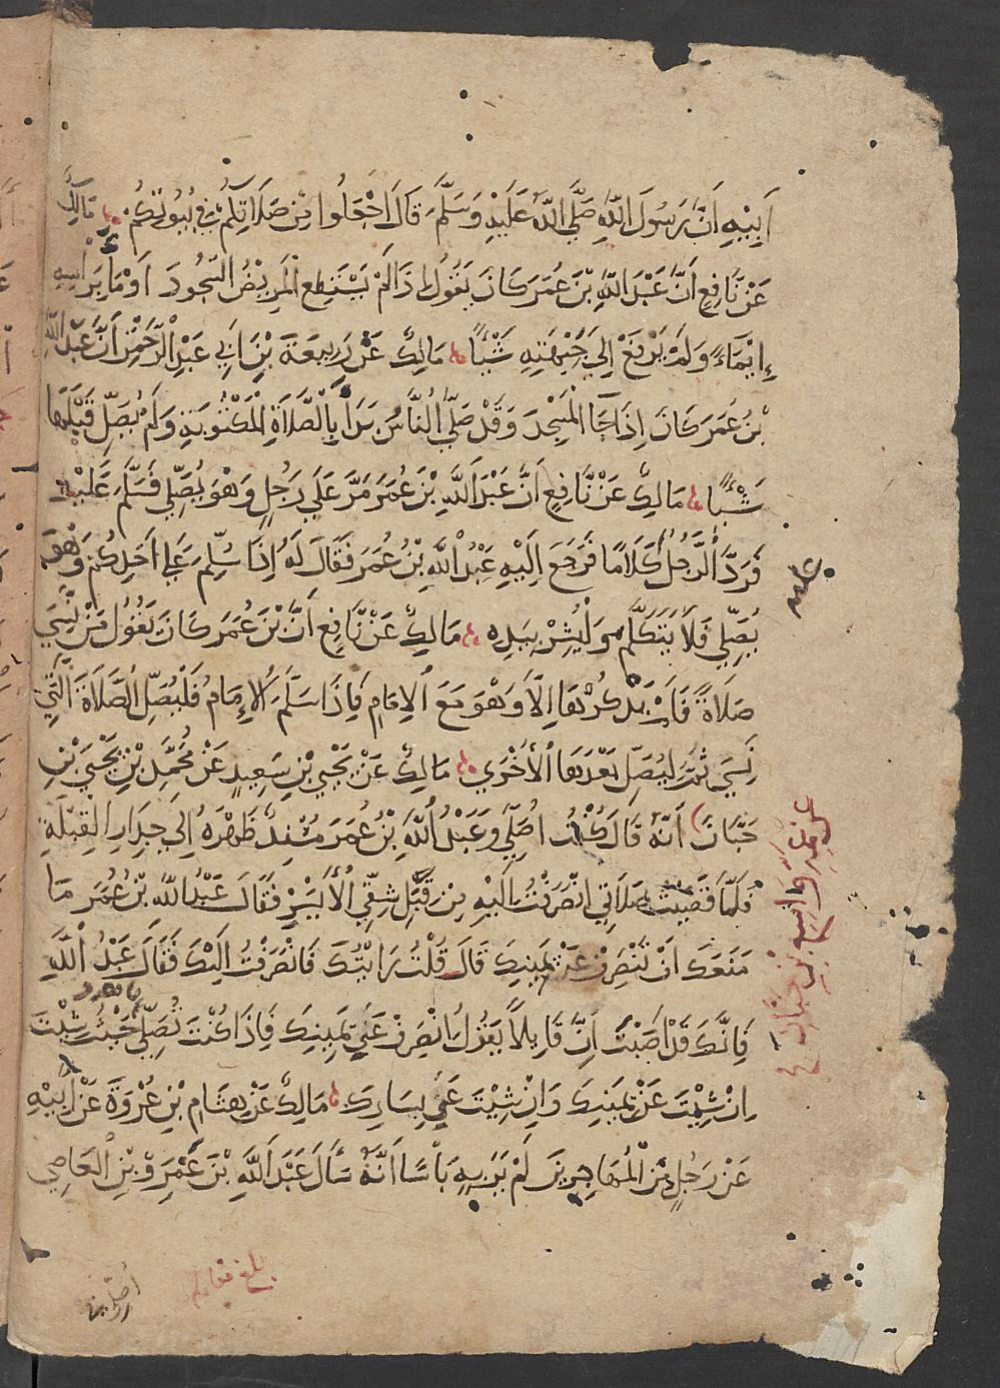 أَبِيْهِ أَنَّ رَسُولَ اللهِ صَلَّى اللهُ عَلَيْهِ وَسَلَّمَ قَالَ اجْعَلُوا مِنْ صَلَاتِكُمْ فِي بُيُوتِكُمْ مَالِكٌ
عَنْ نَافِعٍ أَنَّ عَبْدَ اللهِ بْنَ عُمَرَ كَانَ يَقُولُ إِذَا لَمْ يَسْتَطِعِ الْمَرِيْضُ السُّجُودَ أَوْمَأَ بِرَأْسِهِ
إِيْمَاءً وَلَمْ يَرْفَعْ إِلَى جَبْهَتِهِ شَيْئًا مَالِكٌ عَنْ رَبِيعَةَ بْنِ أَبِي عَبْدِ الرَّحْمٰنِ أَنَّ عَبْدَ اللهِ
بْنَ عُمَرَ كَانَ إِذَا جَا الْمَسْجِدَ وَقَدْ صَلَّى النَّاسُ بَدَأَ بِالصَّلَاةِ الْمَكْتُوبَةِ وَلَمْ يُصَلِّ قَبْلَهَا
شَيْئًا مَالِكٌ عَنْ نَافِعٍ أَنَّ عَبْدَ اللهِ بْنَ عُمَرَ مَرَّ عَلَى رَجُلٍ وَهُوَ يُصَلِّي فَسَلَّمَ عَلَيْهِ
فَرَدَّ الرَّجُلُ كَلَامًا فَرَجَعَ إِلَيْهِ عَبْدُ اللهِ بْنُ عُمَرَ فَقَالَ لَهُ إِذَا سُلِّمَ عَلَى أَحَدِكُمْ وَهُوَ
يُصَلِّي فَلَا يَتَكَلَّمْ وَلْيُشِرْ بِيَدِهِ مَالِكٌ عَنْ نَافِعٍ أَنَّ بْنَ عُمَرَ كَانَ يَقُولُ مَنْ نَسِيَ
صَلَاةً فَلَمْ يَذْكُرْهَا إِلَّا وَهُوَ مَعَ الْإِمَامِ فَإِذَا سَلَّمَ الْإِمَامُ فَلْيُصَلِّ الصَّلَاةَ الَّتِي
نَسِيَ ثُمَّ لِيُصَلِّ بَعْدَهَا الْأُخْرَى مَالِكٌ عَنْ يَحْيَى بْنِ سَعِيدٍ عَنْ مُحَمَّدِ بْنِ يَحْيَى بْنِ
حَبَّانَ أَنَّهُ قَالَ كُنْتُ أُصَلِّي وَعَبْدُ اللهِ بْنُ عُمَرَ مُسْنِدٌ ظَهْرَهُ إِلَى جِدَارِ الْقِبْلَةِ
فَلَمَّا قَضَيْتُ صَلَاتِي انْصَرَفْتُ إِلَيْهِ مِنْ قِبَلِ شِقِّي الْأَيْسَرِ فَقَالَ عَبْدُ اللهِ بْنُ عُمَرَ مَا
مَنَعَكَ أَنْ تَنْصَرِفَ عَنْ يَمِينِكَ قَالَ قُلْتُ رَأَيْتُكَ فَانْصَرَفْتُ إِلَيْكَ فَقَالَ عَبْدُ اللهِ
فَإِنَّكَ قَدْ أَصَبْتَ إِنَّ قَايِلًا يَقُولُ انْصَرِفْ عَنْ يَمِينِكَ فَإِذَا كُنْتَ تُصَلِّي حَيْثُ شِئْتَ
إِنْ شِئْتَ عَنْ يَمِينِكَ وَإِنْ شِئْتَ عَنْ يَسَارِكَ مَالِكٌ عَنْ هِشَامِ بْنِ عُرْوَةَ عَنْ أَبِيْهِ
عَنْ رَجُلٍ مِنَ الْمُهَاجِرِينَ لَمْ يَرَ بِهِ بَأْسًا أَنَّهُ سَأَلَ عَبْدَ اللهِ بْنَ عَمْرِو بْنِ الْعَاصِي
عليه
فانصرف
عن عمه واسع بن حبان
بلغ مقابلة
أُصَلِّي